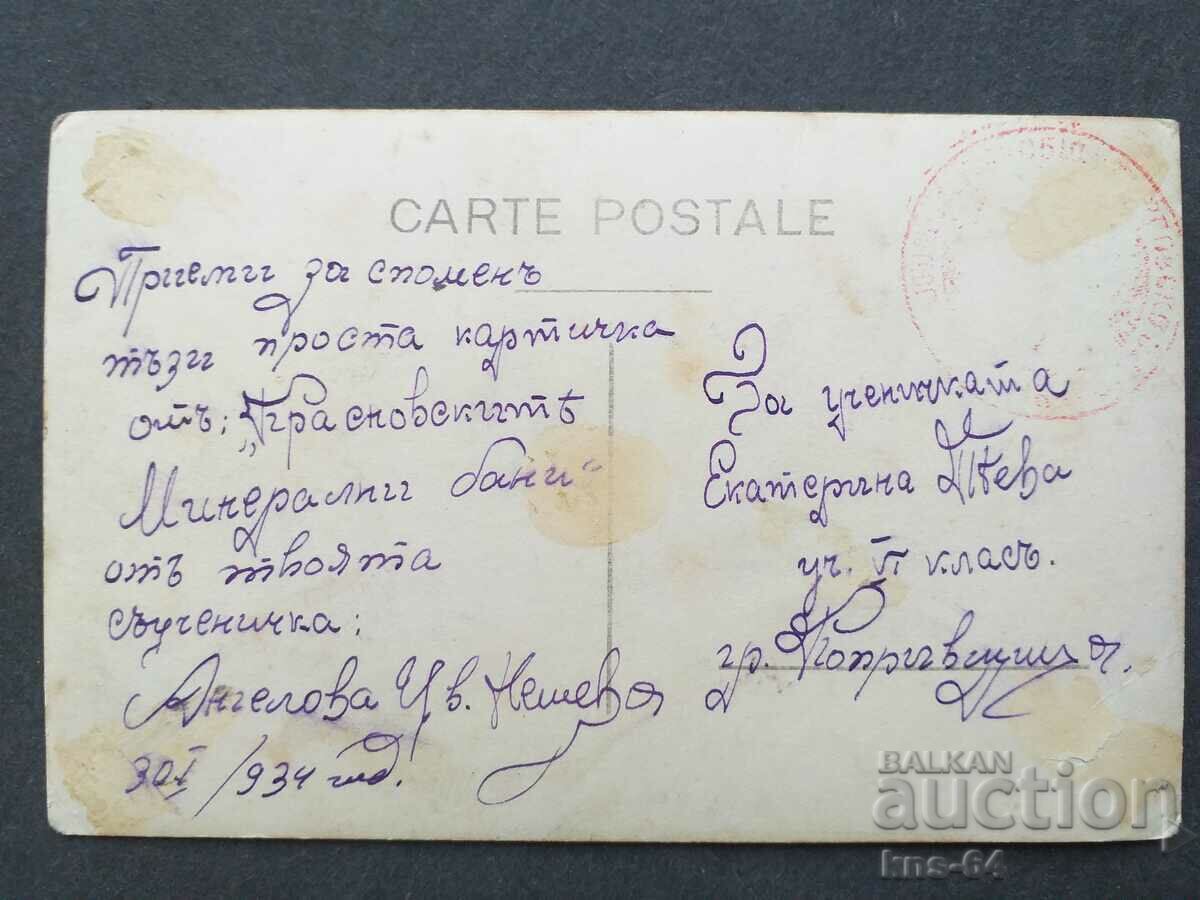 CARTE POSTALE
Приеми за споменъ
тъзи проста картичка
отъ: „Красновскитѣ
Минерални бани“
отъ твоята
съученичка:
Ангелова Цв. Нешева
30 I /934 год.
За ученичката
Екатерина
уч. VI класъ.
гр. Копривщица.
BALKAN
auction
kns-64